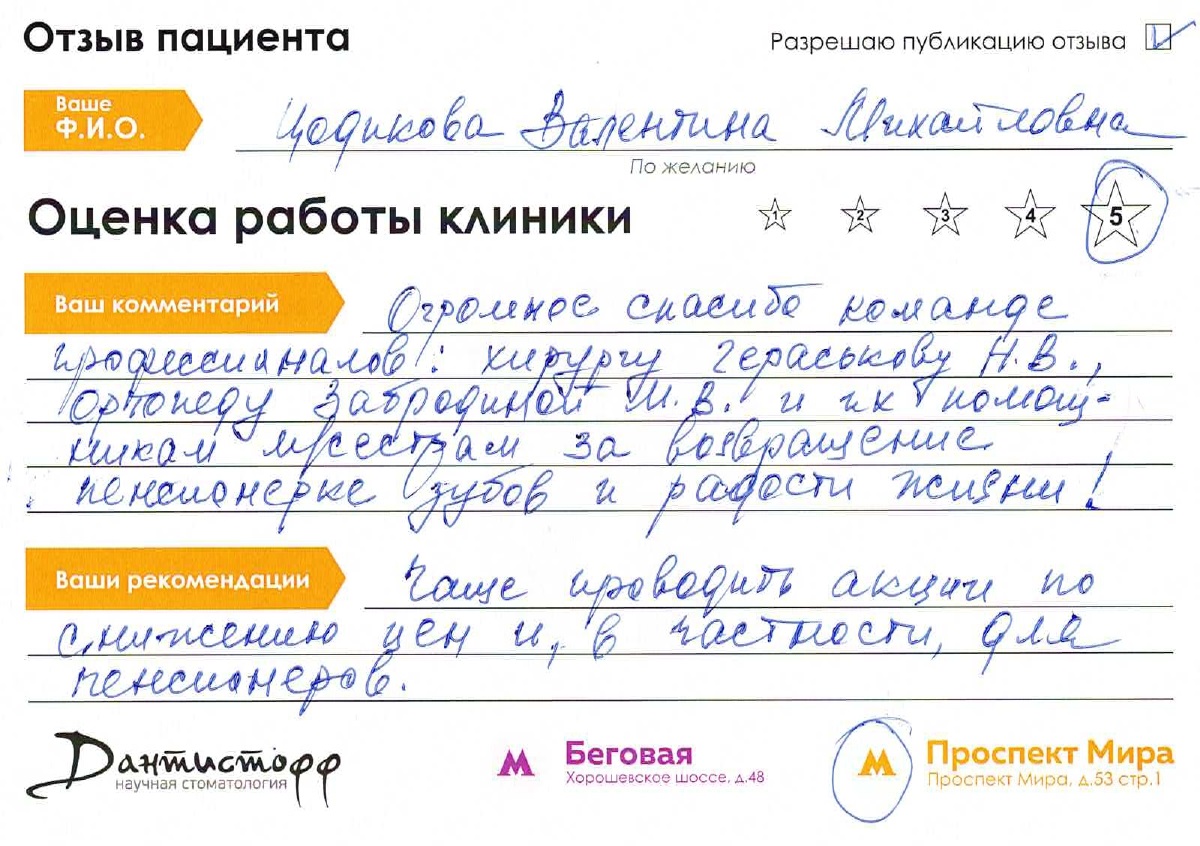 Отзыв пациента
Разрешаю публикацию отзыва
Ваше
Ф.И.О.
Цодикова Валентина Михайловна
По желанию
Оценка работы клиники
1 2 3 4 5
Ваш комментарий
Огромное спасибо команде
профессионалов: хирургу Гераськову Н.В.,
ортопеду Забродиной М.В. и их помощ-
никам м/сестрам за возвращение
пенсионерке зубов и радости жизни!
Ваши рекомендации
Чаще проводить акции по
снижению цен и, в частности, для
пенсионеров.
Дантистофф
научная стоматология
М Беговая
Хорошевское шоссе, д.48
М Проспект Мира
Проспект Мира, д.53 стр.1